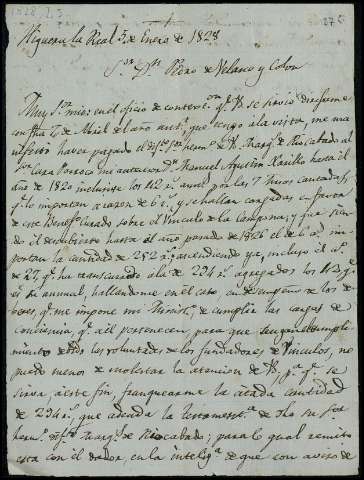 Higuera la Real 5 de Enero de 1828
Sor Dn Pedro de Velasco y Colon
Muy Sor mio: en el oficio de contestcon qe V se sirvió dirigirme
con fha de Abril del año antr, que tengo á la vista, me ma
nifestó haver pagado el difto Sor hermo de V Marqs de Riocabado al
Sor Cura Parroco mi antecesor Dn Manuel Agustin Carillo hasta el
año de 1820 inclusive los 42 rs anual por las 7 Misas cantadas
qe lo importan á razon de 6 rs, y se hallan cargadas en favor
de este Benefo Curado sobre el Vinculo de la Campana; y que sien
do el descubierto hasta el año pasado de 1826 el de 6 as im
portan la cantidad de 252 rs, ascendiendo ya, incluso el as
de 27 qe ha transcurrido á la de 294 rs agregados los 42 rs
de su anual, hallandome en el caso en desempeño de los de
beres, qe me impone mi Ministo, de cumplir las cargas de
conciencia, qe á él pertenecen, para que tengan el cumpli
miento debido las voluntades de los fundadores de Vinculos, no
puedo menos de molestar la atencion de V, pa qe se
sirva, á este fin, franquearme la citada cantidad
de 294 rs, que adeuda la testamenta de dho su Sor
hermo difto Marqs de Riocabado; para lo qual remito
esta con el dador, en la inteliga de que con aviso de